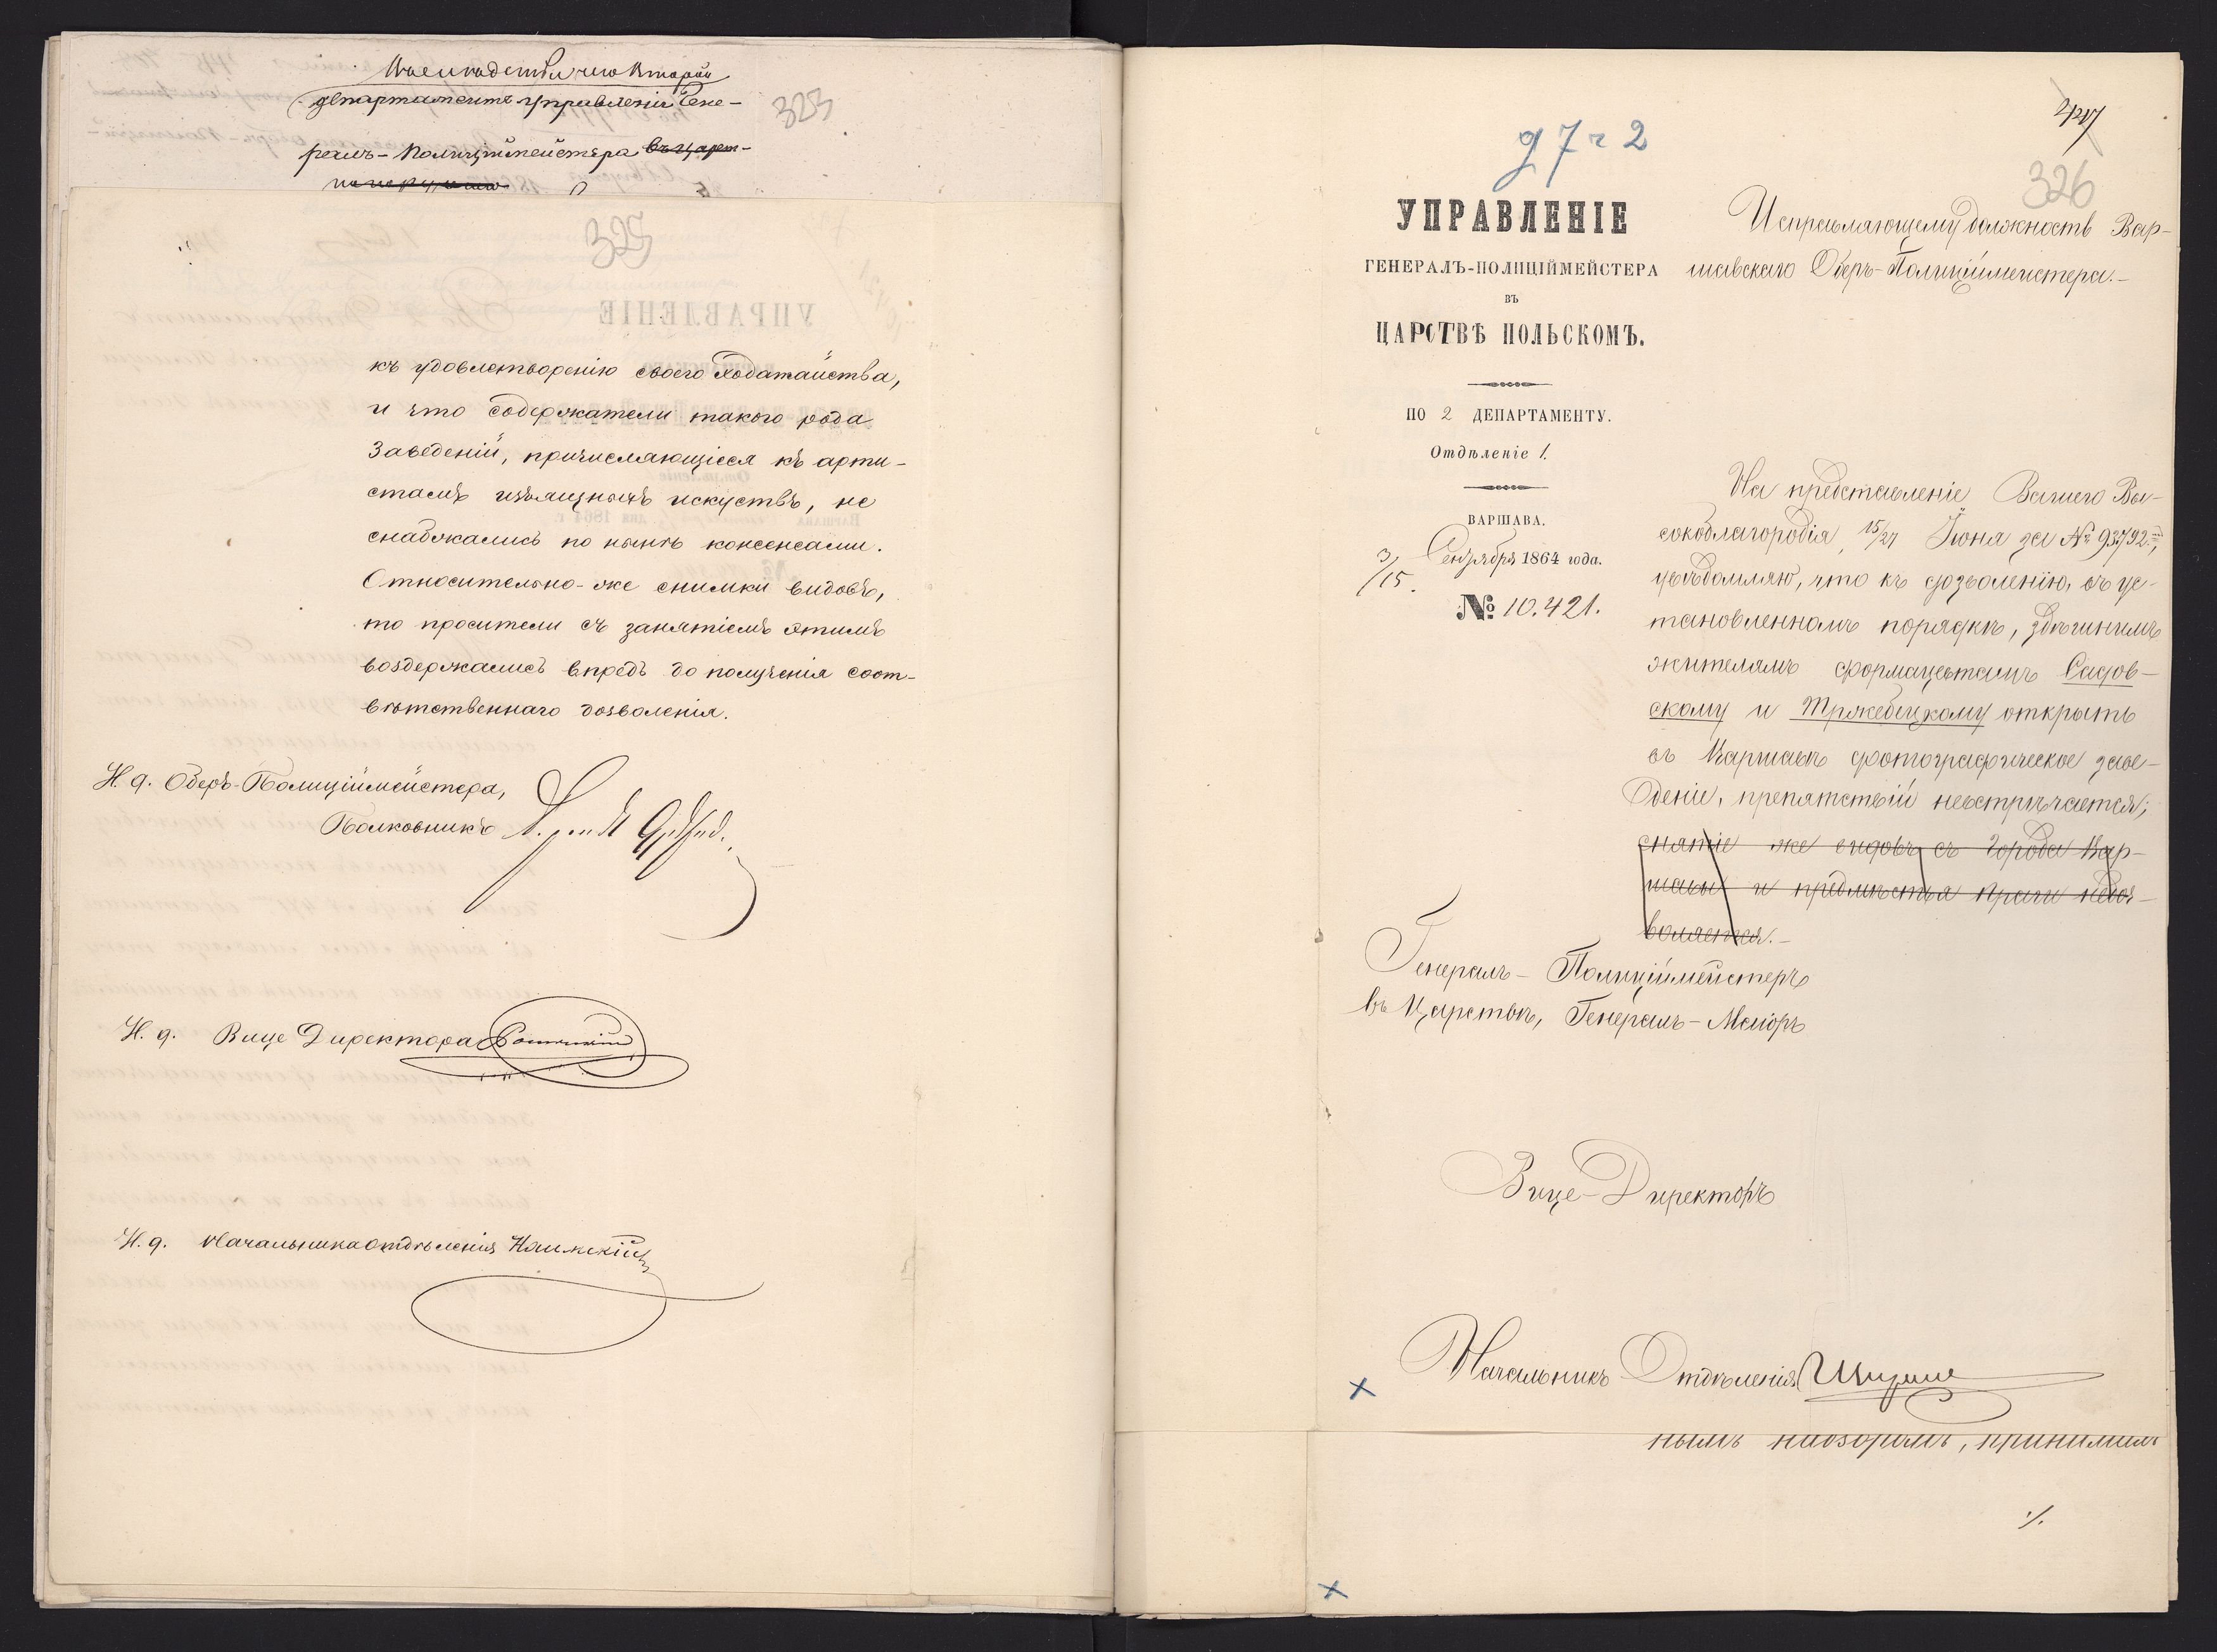 департаментъ управленія Гене-
ралъ-Полиціймейстера въ Цар-
323
325
къ удовлетворенію своего ходатайства,
и что содержатели такого рода
Заведеній, причисляющіеся къ арти-
стамъ изъящныхъ искуствъ, не
снабжались по нынѣ консенсами.
Относительно-же снимки видовъ,
то просители съ занятіемъ этимъ
воздержались впредъ до полученія соот-
вѣтственнаго дозволенія.
И. д. Оберъ-Полиціймейстера,
Полковникъ
И. д. Вице Директора
И. д. Начальника Отдѣленія
д 7 ч 2
326
УПРАВЛЕНІЕ
ГЕНЕРАЛЪ-ПОЛИЦІЙМЕЙСТЕРА
ВЪ
ЦАРСТВѢ ПОЛЬСКОМЪ.
ПО 2 ДЕПАРТАМЕНТУ.
Отдѣленіе 1.
ВАРШАВА.
3/15 Сентября 1864 года.
№ 10.421.
Исправляющему должность Вар-
шавскаго Оберъ-Полиціймейстера.-
На представленіе Вашего Вы-
сокоблагородія, 15/27 Іюня за № 93792,
увѣдомляю, что къ дозволенію, въ ус-
тановленномъ порядкѣ, здѣшнимъ
жителямъ фармацевтамъ Садов-
скому и Тржебецкому открыть
въ Варшавѣ фотографическое заве-
деніе, препятствій невстрѣчается;
снятіе же видовъ съ города Вар-
шавы и предмѣстья Праги недоз-
воляется.-
Генералъ-Полиціймейстеръ
въ Царствѣ, Генералъ-Маіоръ
Вице-Директоръ
Начальникъ Отдѣленія
нымъ надзоромъ, принимая
./.